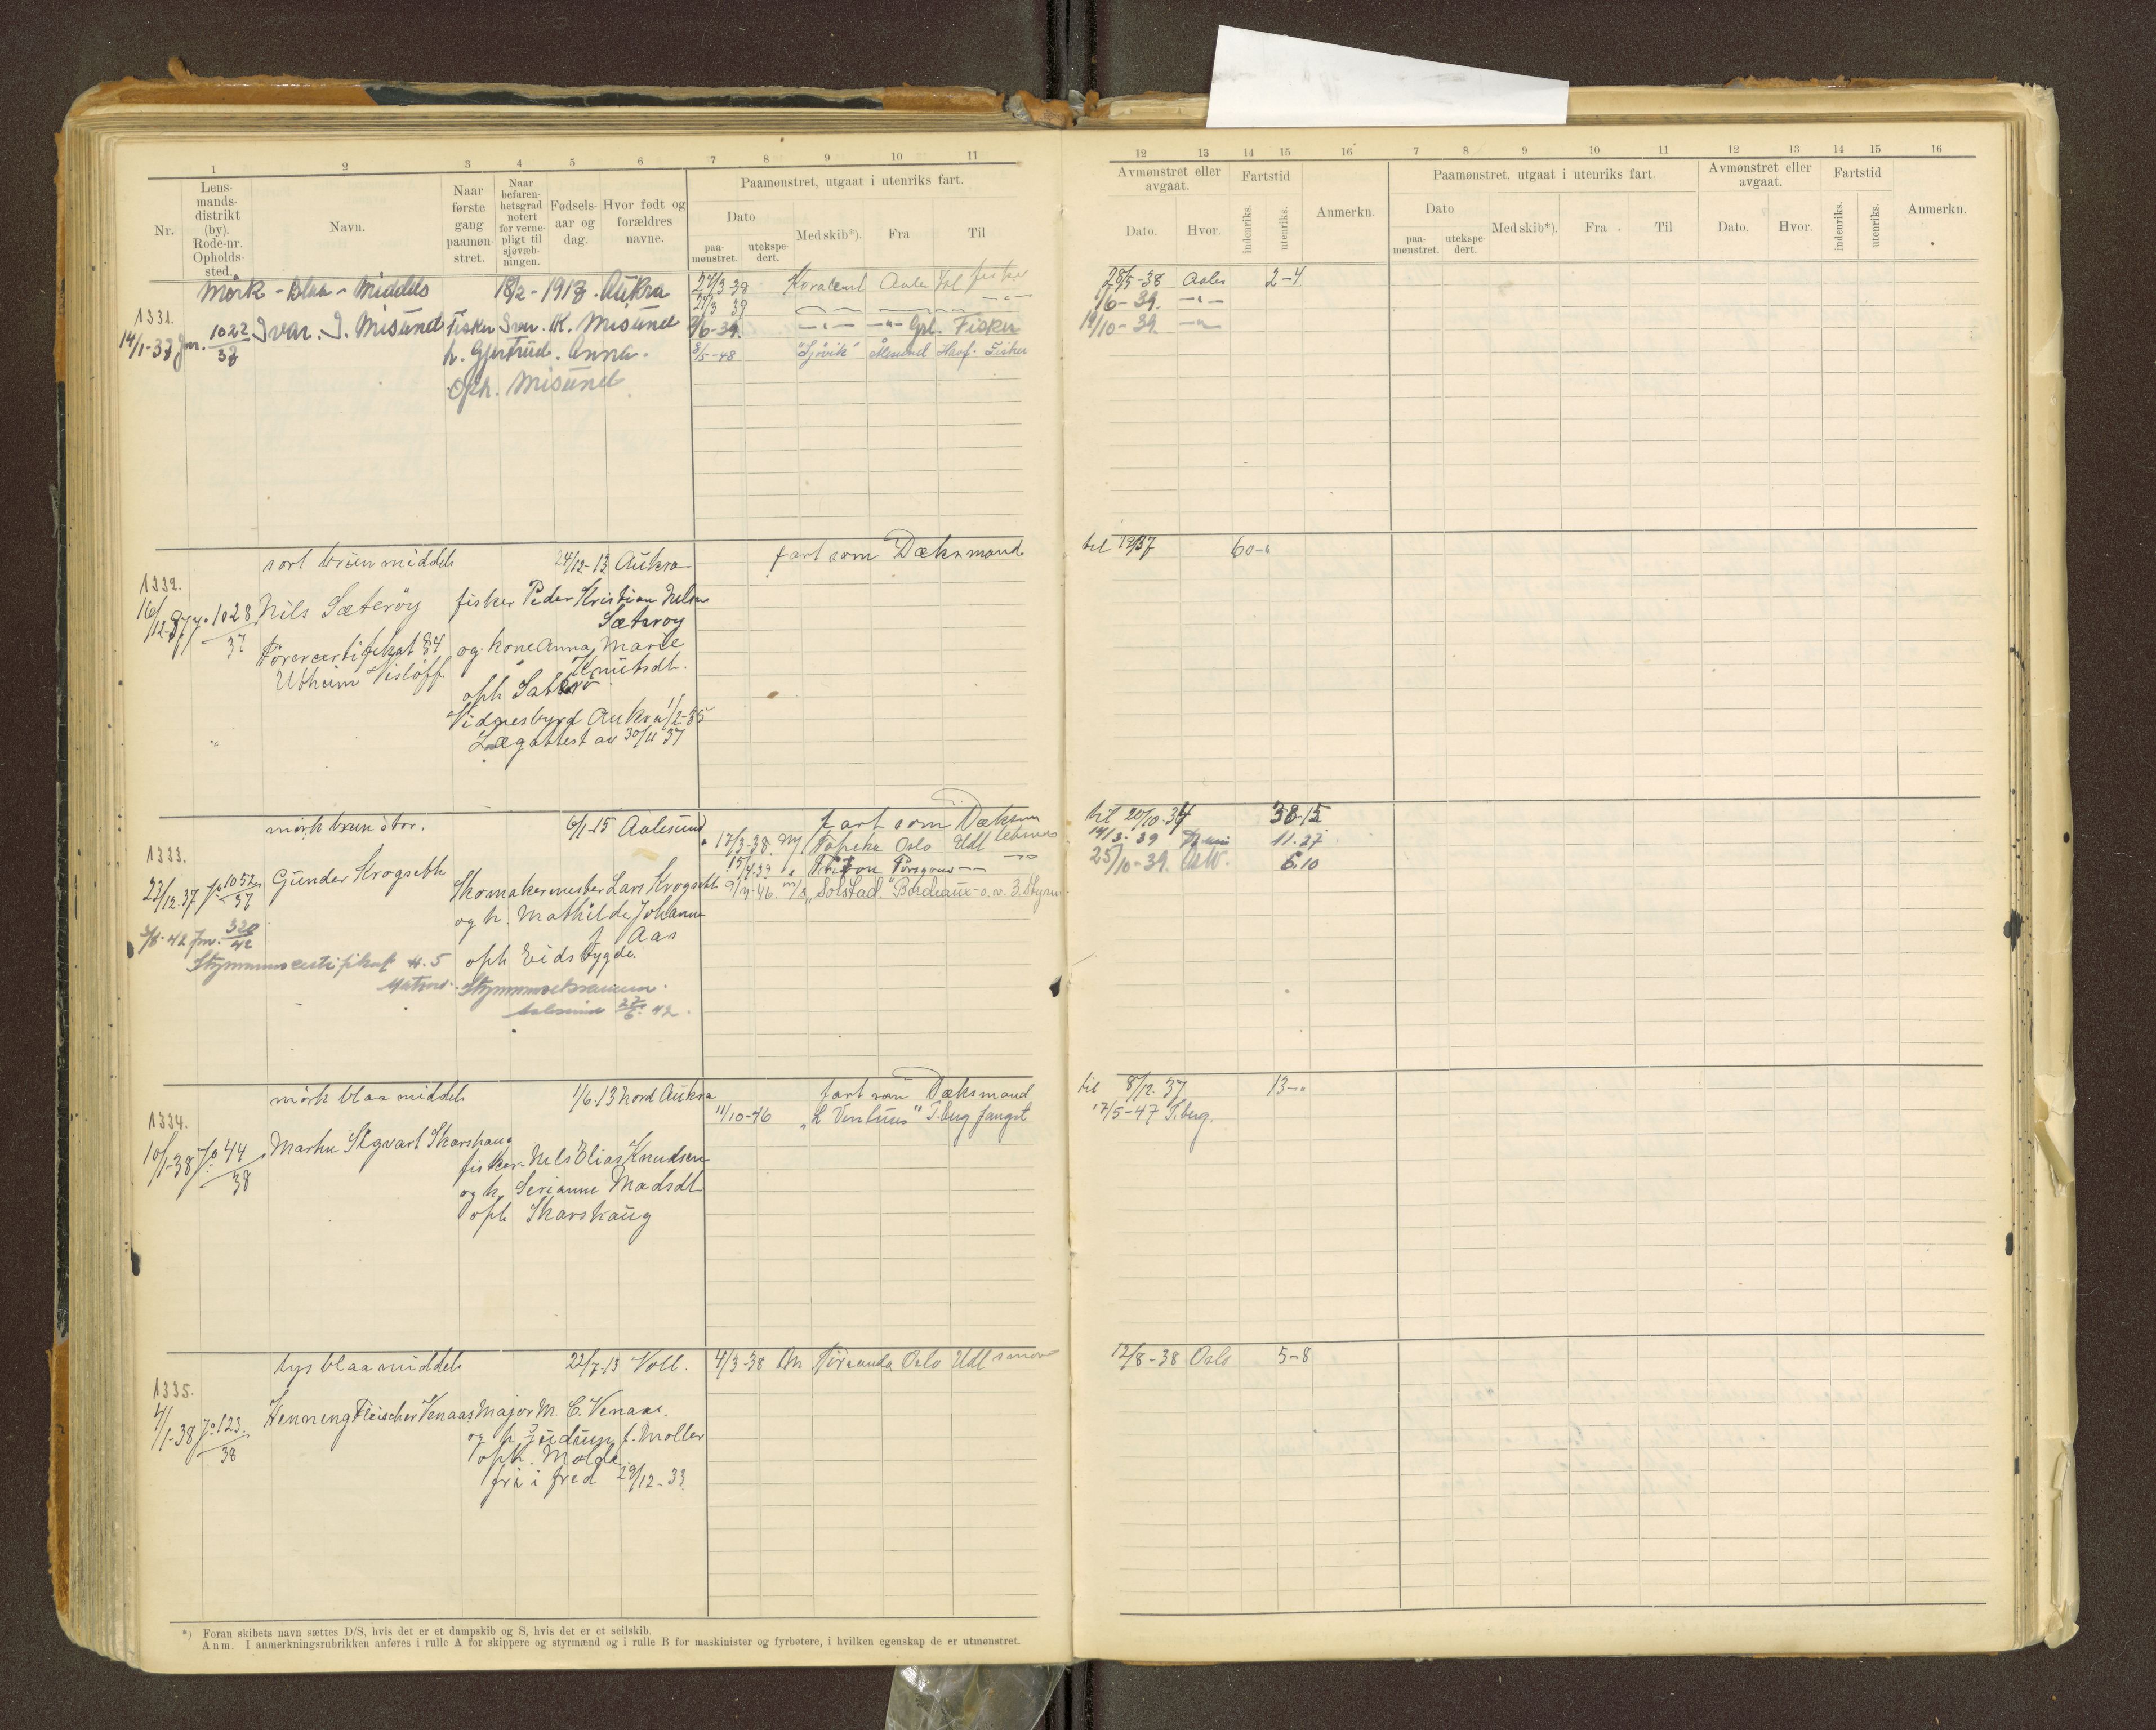 1 2 3 4 5 6 7 8 9 10 11
Nr.
Lens-
mands-
distrikt
(by).
Rode-nr.
Opholds-
sted.
Navn.
Naar
første
gang
paamøn-
stret.
Naar
befaren-
hetsgrad
notert
for verne-
pligt til
sjøvæb-
ningen.
Fødsels-
aar og
dag.
Hvor født og
forældres
navne.
Paamønstret, utgaat i utenriks fart.
Dato
paa-
mønstret.
utekspe-
dert.
Med skib*).
Fra
Til
Mörk - Blaa - Middels 18/2 - 1918. Aukra
1331.
14/1-38 Jnr. 1022/38 Ivar. I. Misund Fisker Ivar. K. Misund
h. Gjertrud. Anna.
Oph. Misund
24/3-38 Aales fisker
21/3 39
9/6-39. Fisker
8/5-48 "Sjövik" Ålesund Havf. Fisker
sort brun middels 24/12-13 Aukra fart som Dæksmand
1332.
16/12-37 Jo 1028/37 Nils Sæterøy fisker Peder Kristian Nelsen
Sæterøy
Förercertifikat §4 og kone Anna Marie
Knutsdt.
oph Sæterø
Vidnesbyrd Aukra 1/2-35
Lægattest av 30/11 37
mörk brun stor. 6/1-15 Aalesund fart som Dæksm
1333.
23/12.37 Jo 1052/37 Gunder Krogseth
Skomakermester Lars Krogseth
og h. Mathilde Johanne
f Aas
oph Eidsbygde.
3/8-42 Jnr. 320/42
Styrmannscertifikat §.5
Styrmannseksamen
Aalesund 22/6 42.
17/3-38. M/ Topeka Oslo Udl
15/4.39 Triton Porsgrund
9/4-46. m/s "Solstad" Bordeaux o.v. 3. Styrm.
mörk blaa middels 1/6.13 Nord Aukra fart som Dæksmand
1334.
10/1-38 Jo 44/38 Martin Sigvart Skarshaug
fisker Nels Elias Knudsen
og h. Serianne Madsdt
oph Skarshaug
11/10-46 Tberg fangst
lys blaa middels 22/7.13 Voll. 4/3-38 Oslo Udl
1335.
4/1-38 Jo 123./38 Henning Fleischer Venaas Major M. C. Venaas.
og h Gudrun f. Moller
oph. Molde
fri i fred 29/12-33
*) Foran skibets navn sættes D/S, hvis det er et dampskib og S, hvis det er et seilskib.
Anm. I anmerkningsrubrikken anføres i rulle A for skippere og styrmænd og i rulle B for maskinister og fyrbøtere, i hvilken egenskap de er utmønstret.
12 13 14 15 16 7 8 9 10 11 12 13 14 15 16
Avmønstret eller
avgaat.
Dato.
Hvor.
Fartstid
indenriks.
utenriks.
Anmerkn.
Paamønstret, utgaat i utenriks fart.
Dato
paa-
mønstret.
utekspe-
dert.
Med skib*).
Fra
Til
Avmønstret eller
avgaat.
Dato.
Hvor.
Fartstid
indenriks.
utenriks.
Anmerkn.
28/5-38 Aales 2-4
9/6-39. -"-
19/10-39. -"-
til 19/37 60-"
til 20/10.34 38-15
14/3-39 11.27
25/10-39. Oslo. 6.10
til 8/12.37 13-"
17/5-47 T.berg.
12/8-38 Oslo 5-8